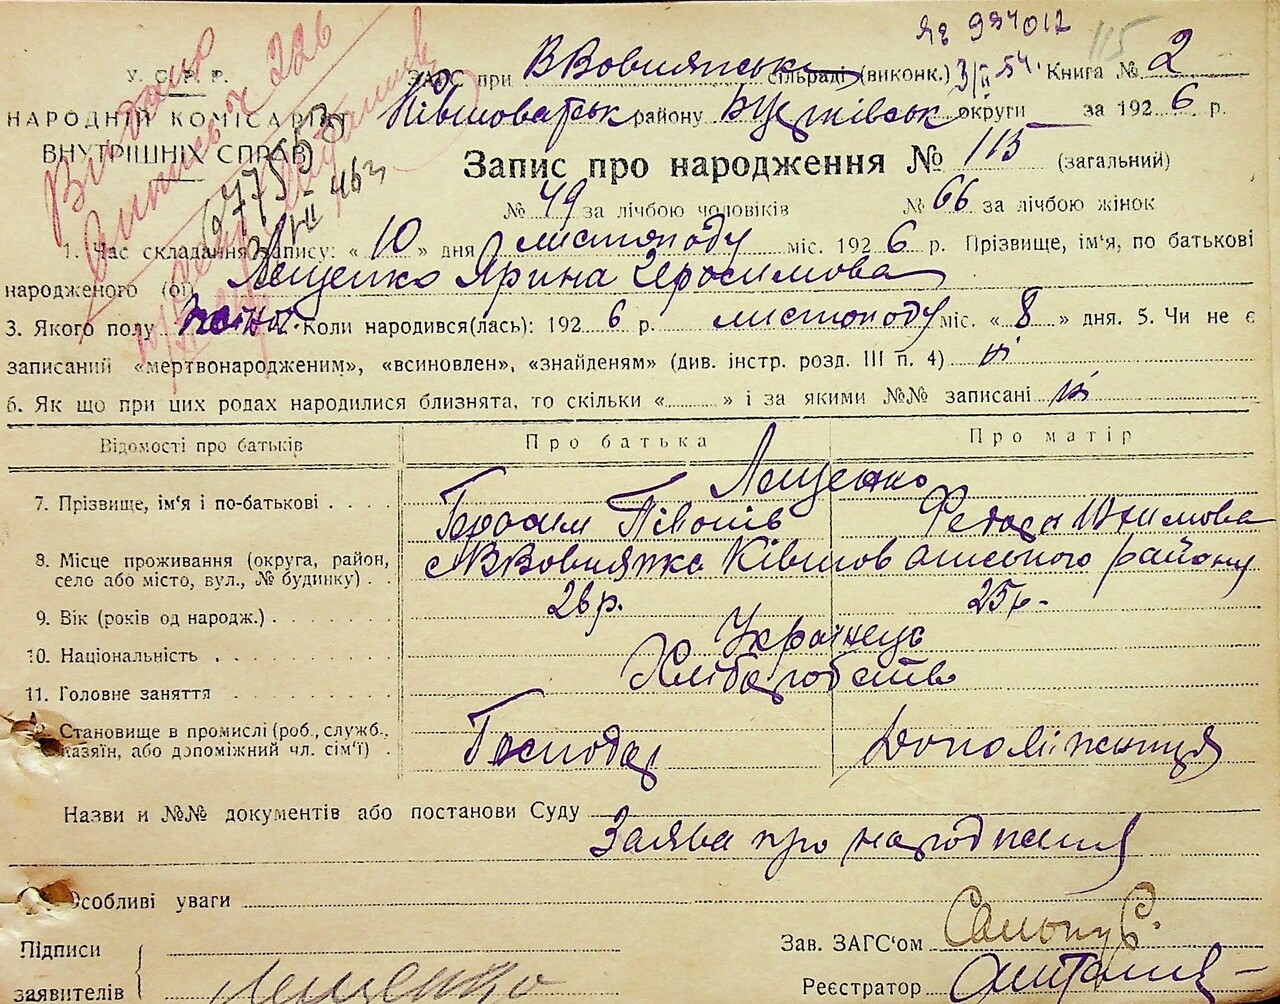 У. С. Р. Р.
НАРОДНІЙ КОМІСАРІЯТ
ВНУТРІШНІХ СПРАВ
ЗАГС при сільраді (виконк.) 3/II 54. Книга № 2
району округи за 1926 р.
Запис про народження № 115 (загальний)
115
№ 49 за лічбою чоловіків № 66 за лічбою жінок
1. Час складання запису: « 10 » дня листопаду міс. 1926 р. Прізвище, ім'я, по батькові
народженого (ої) Лещенко Ярина Герасимова
3. Якого полу Коли народився(лась): 1926 р. листопаду міс. « 8 » дня. 5. Чи не є
записаний «мертвонародженим», «всиновлен», «знайденям» (див. інстр. розд. III п. 4) ні
6. Як що при цих родах народилися близнята, то скільки « » і за якими №№ записані ні
Відомості про батьків Про батька Про матір
7. Прізвище, ім'я і по-батькові Лещенко
Герасим
8. Місце проживання (округа, район, село або місто, вул., № будинку) району
9. Вік (років од народж.) 26 р. 25 р.
10. Національність Українець
11. Головне заняття Хліборобство
12. Становище в промислі (роб., служб., хазяїн, або допоміжний чл. сім'ї) Господар Допоміжниця
Назви и №№ документів або постанови Суду
Заява про народження
Особливі уваги
Підписи
заявителів Лещенко
Зав. ЗАГС'ом
Реєстратор